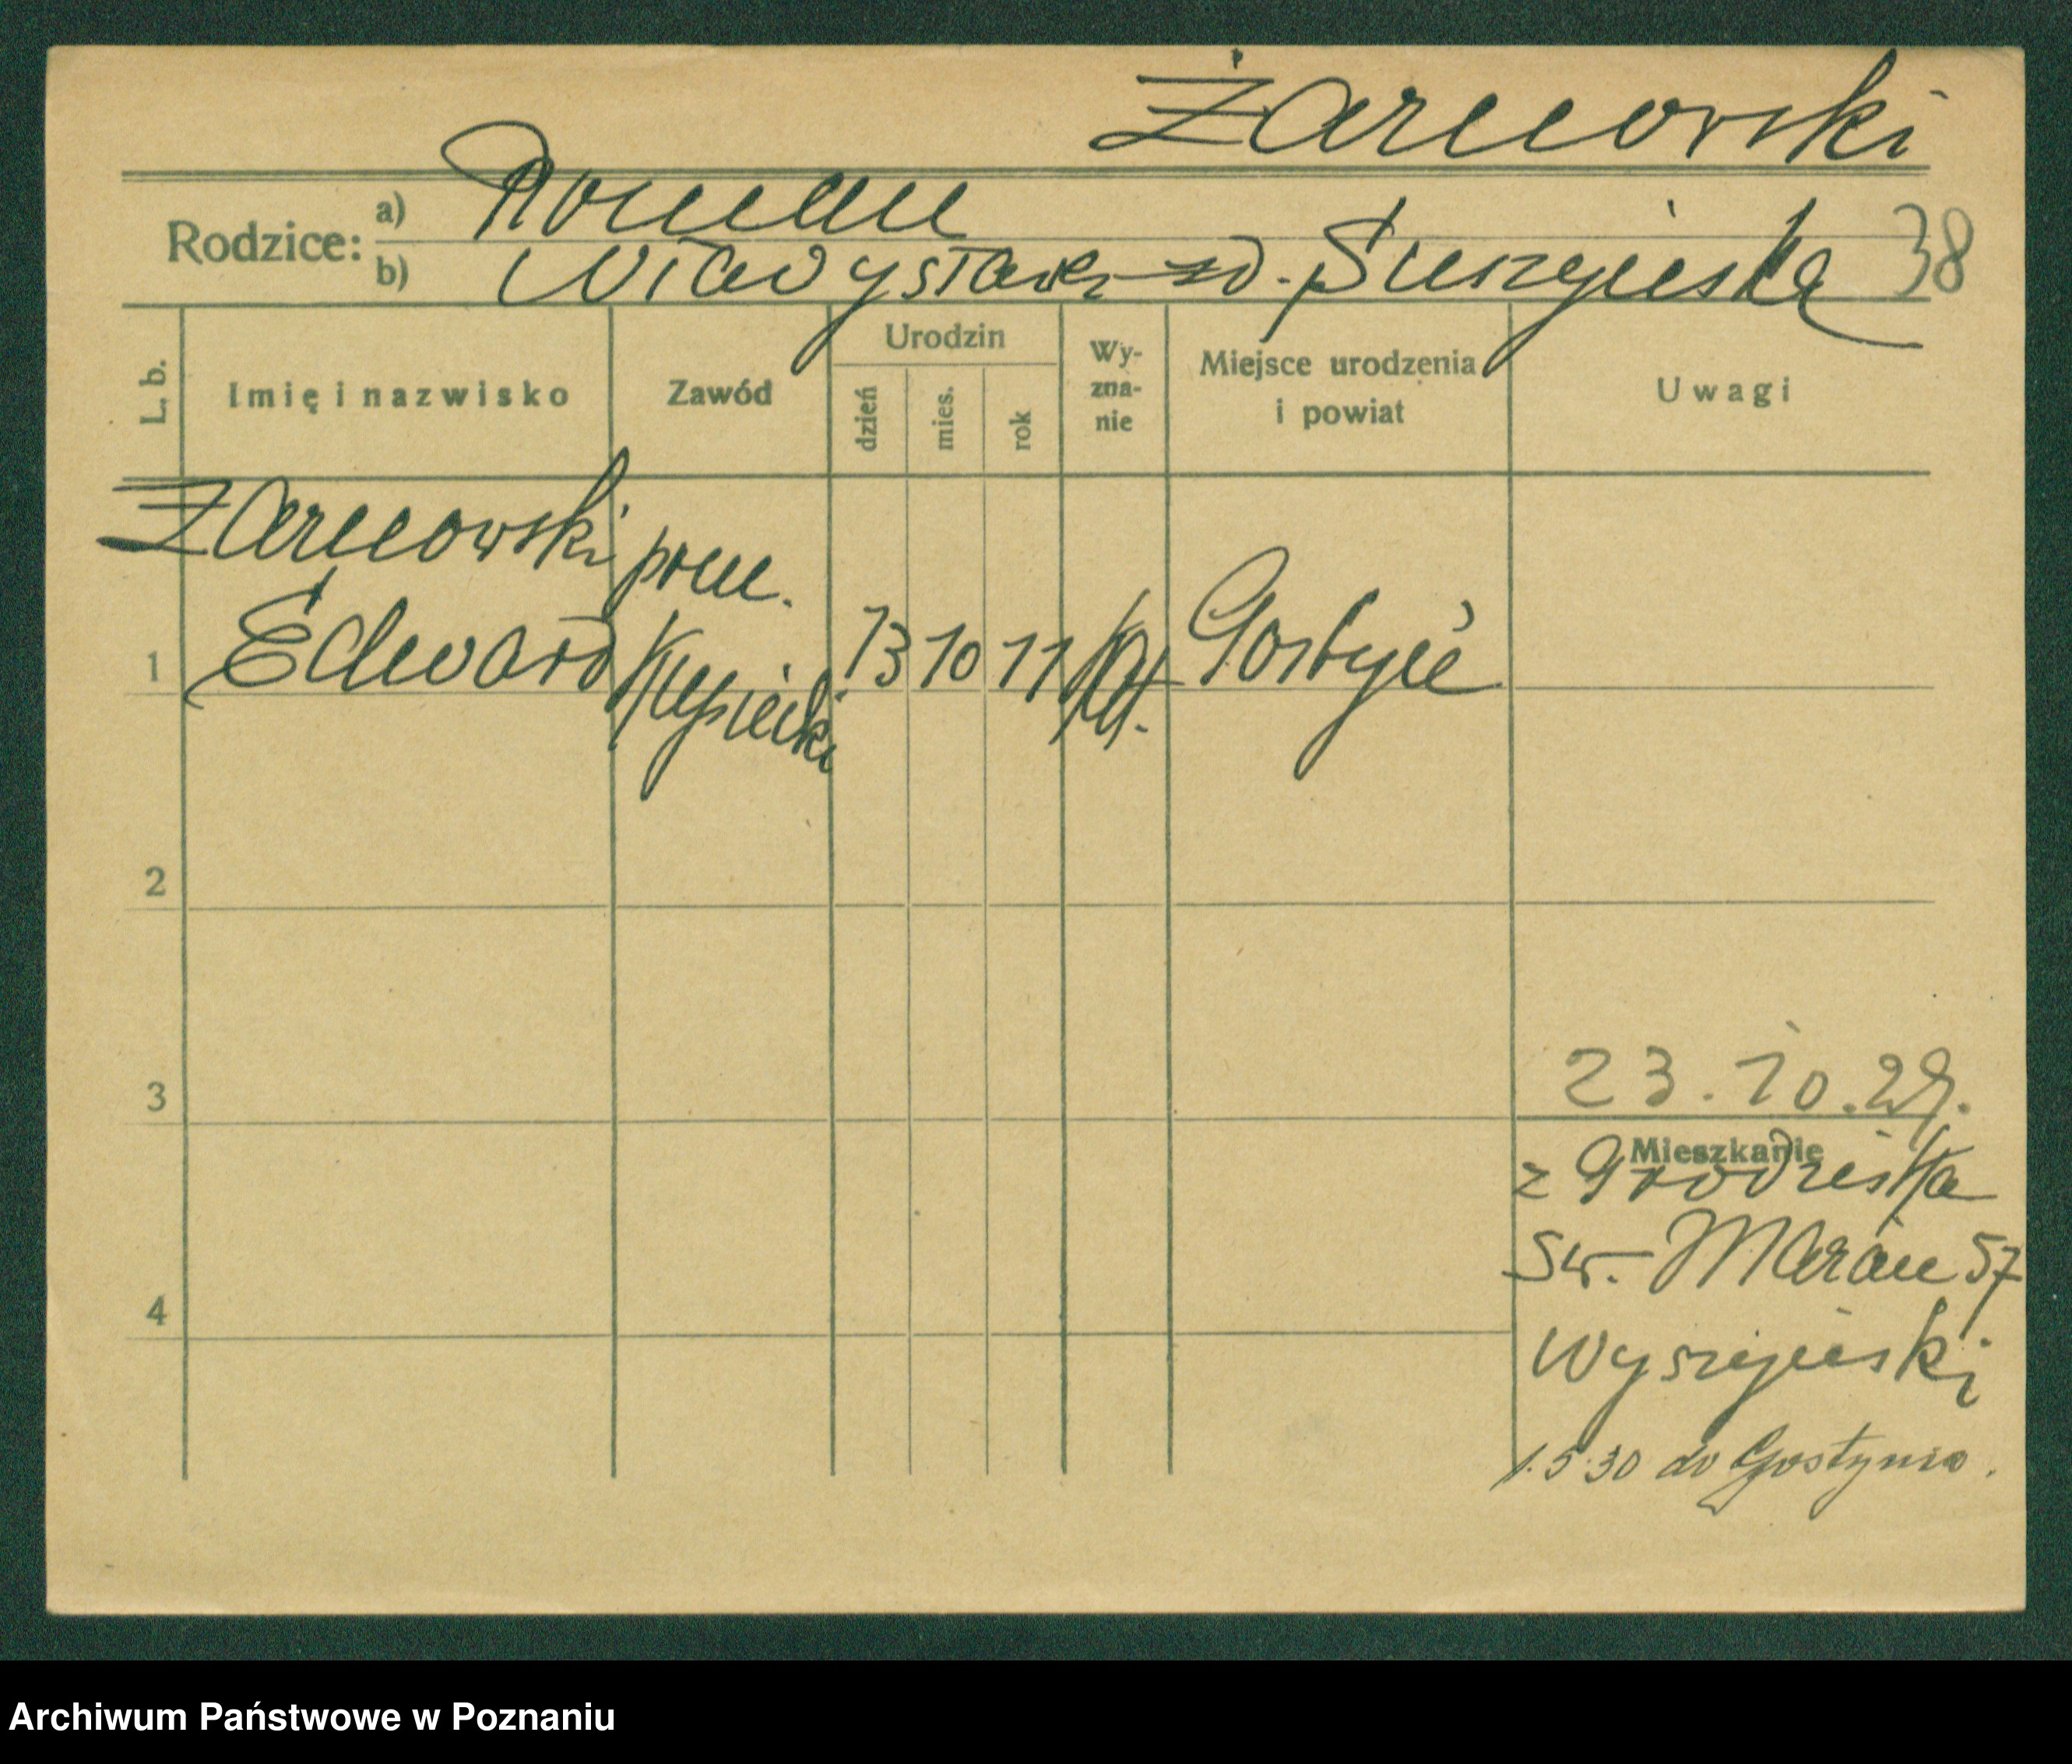 Żarnowski
Rodzice: a) Roman
b) Władysława zd. Suszyńska 38
L. b. Imię i nazwisko Zawód Urodzin dzień mies. rok Wyznanie Miejsce urodzenia i powiat Uwagi
Żarnowski pom.
1 Edward Kupiecki 13 10 11 kat. Gostyń
2
3
23.10.29.
Mieszkanie
z Grodziska
Św. Marcin 57
4
Wyszyński
1.5.30 do Gostynia.
Archiwum Państwowe w Poznaniu